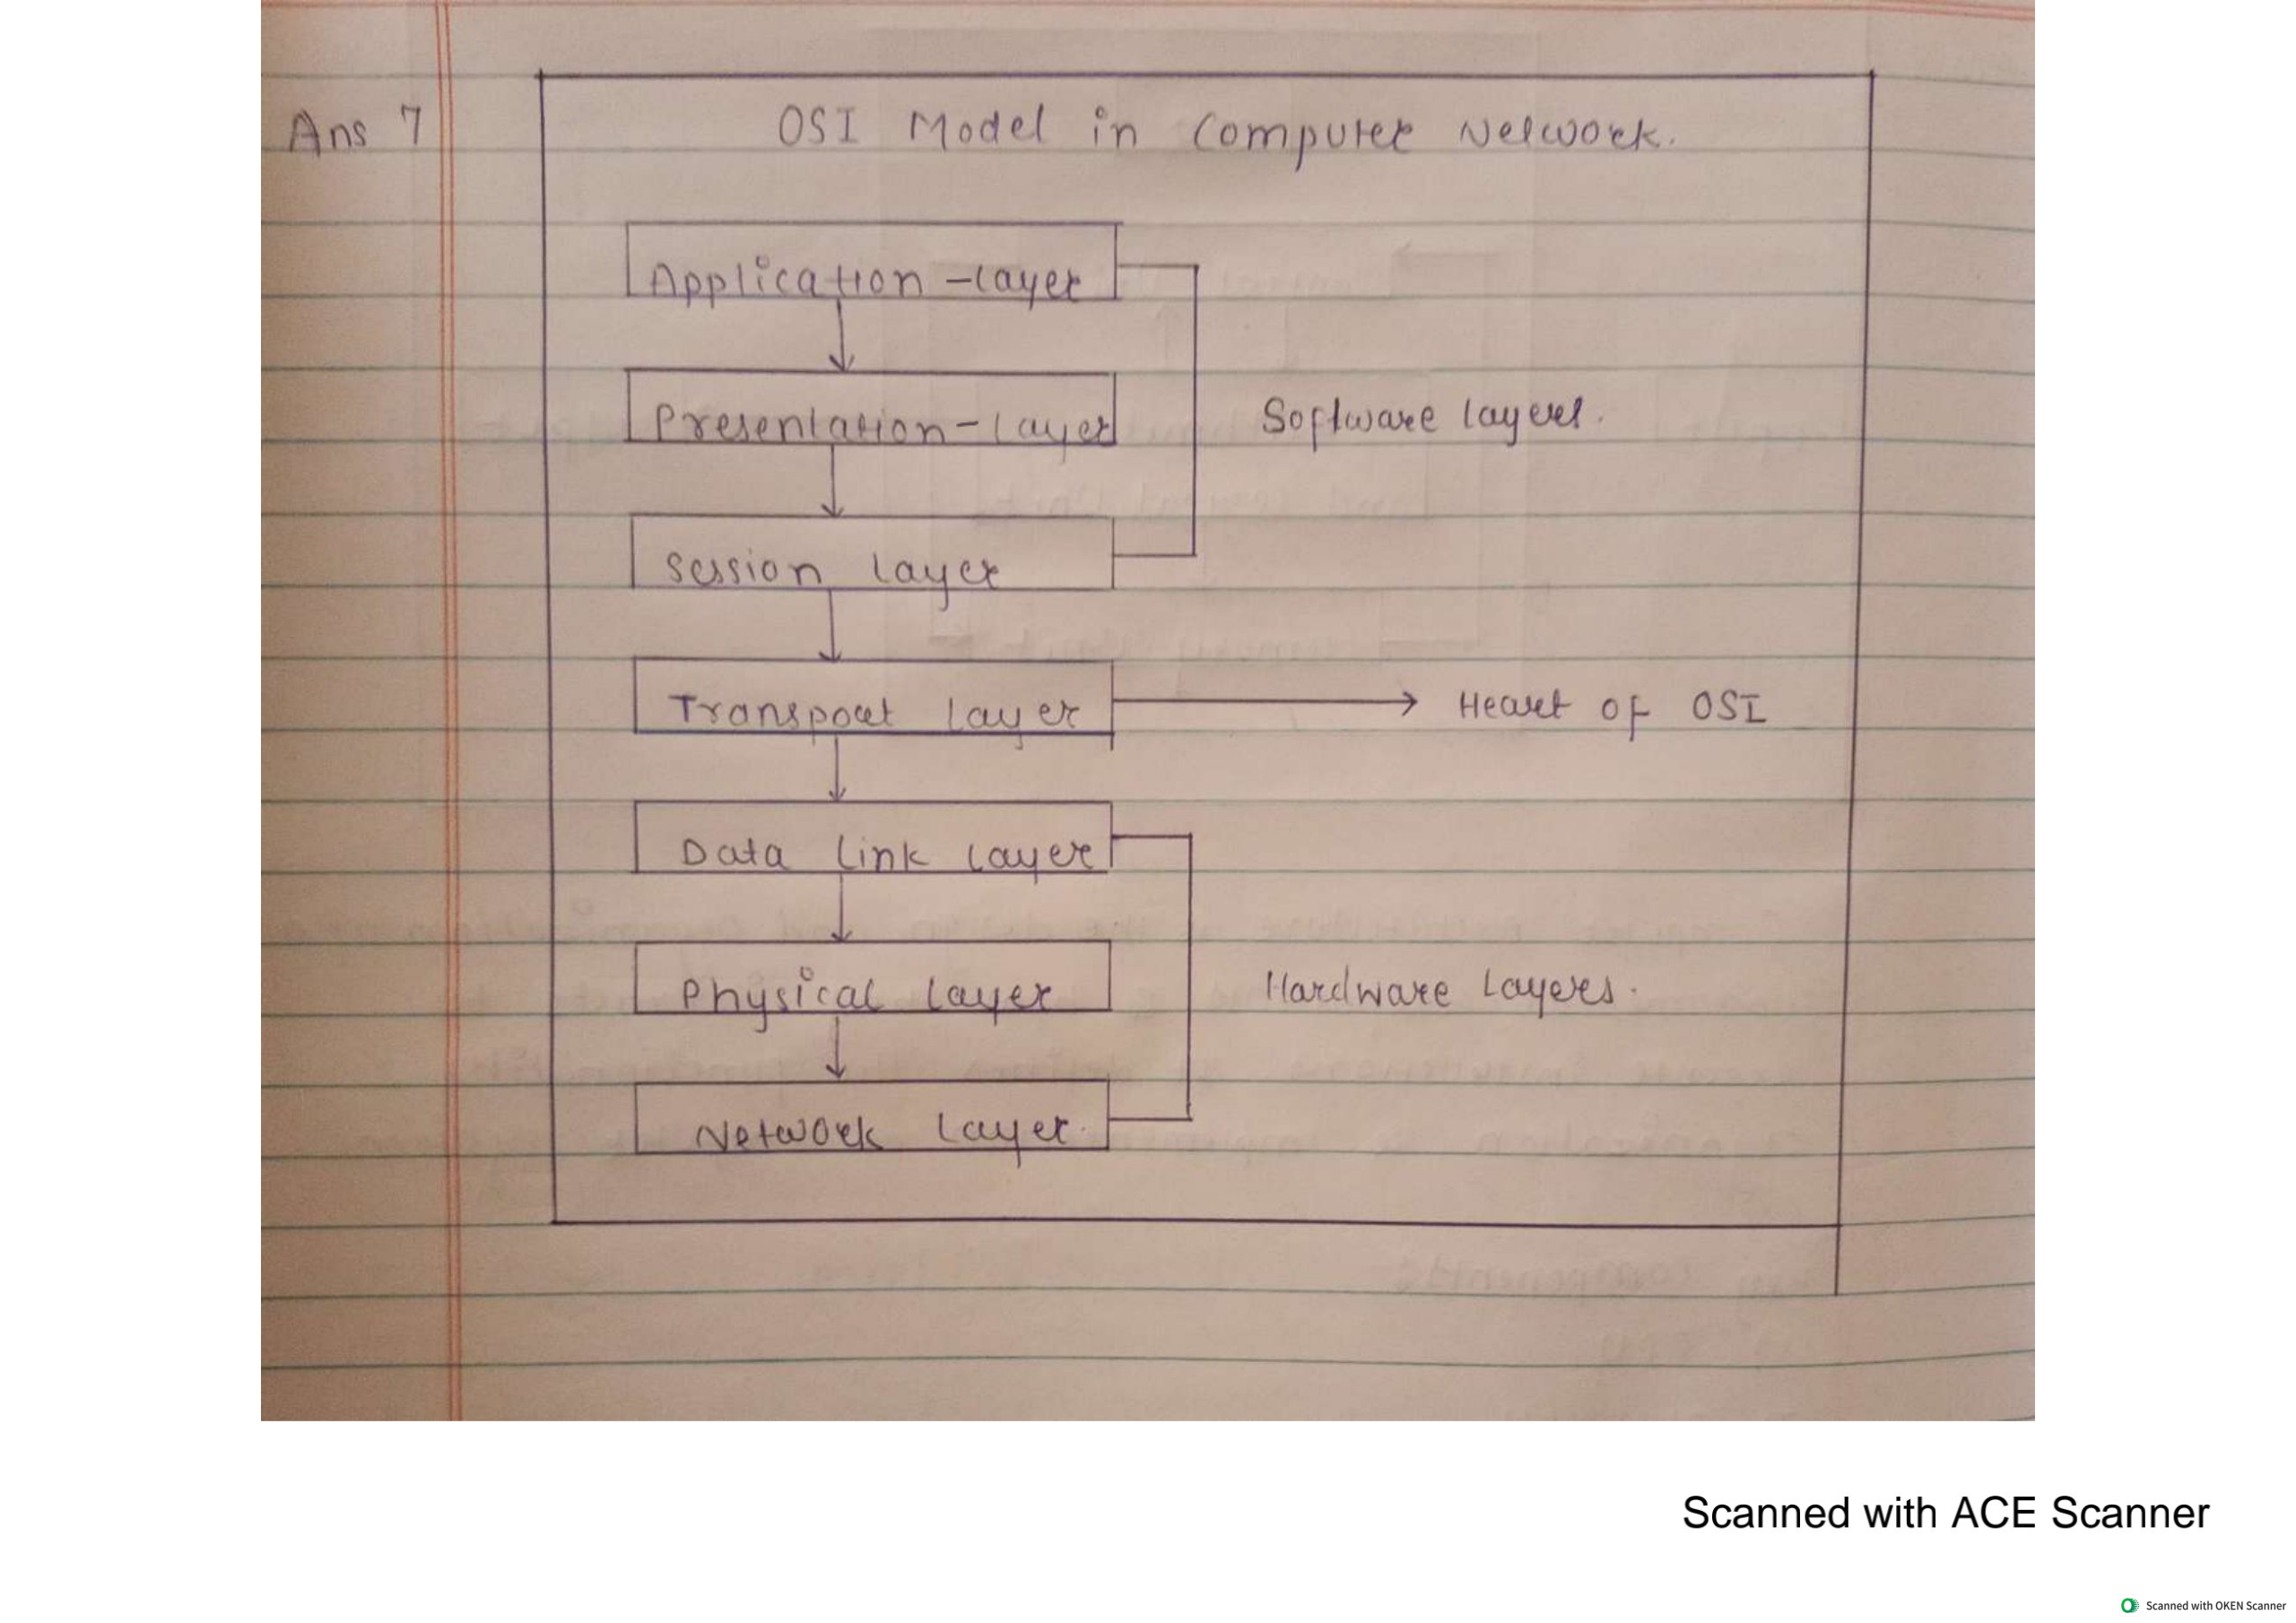 Ans 7
OSI Model in Computer Network.
Application -layer
Presentation-layer
Software layers.
Session layer
Transport layer
Heart of OSI
Data link layer
Physical layer
Hardware Layers.
Network layer.
Scanned with ACE Scanner
Scanned with OKEN Scanner